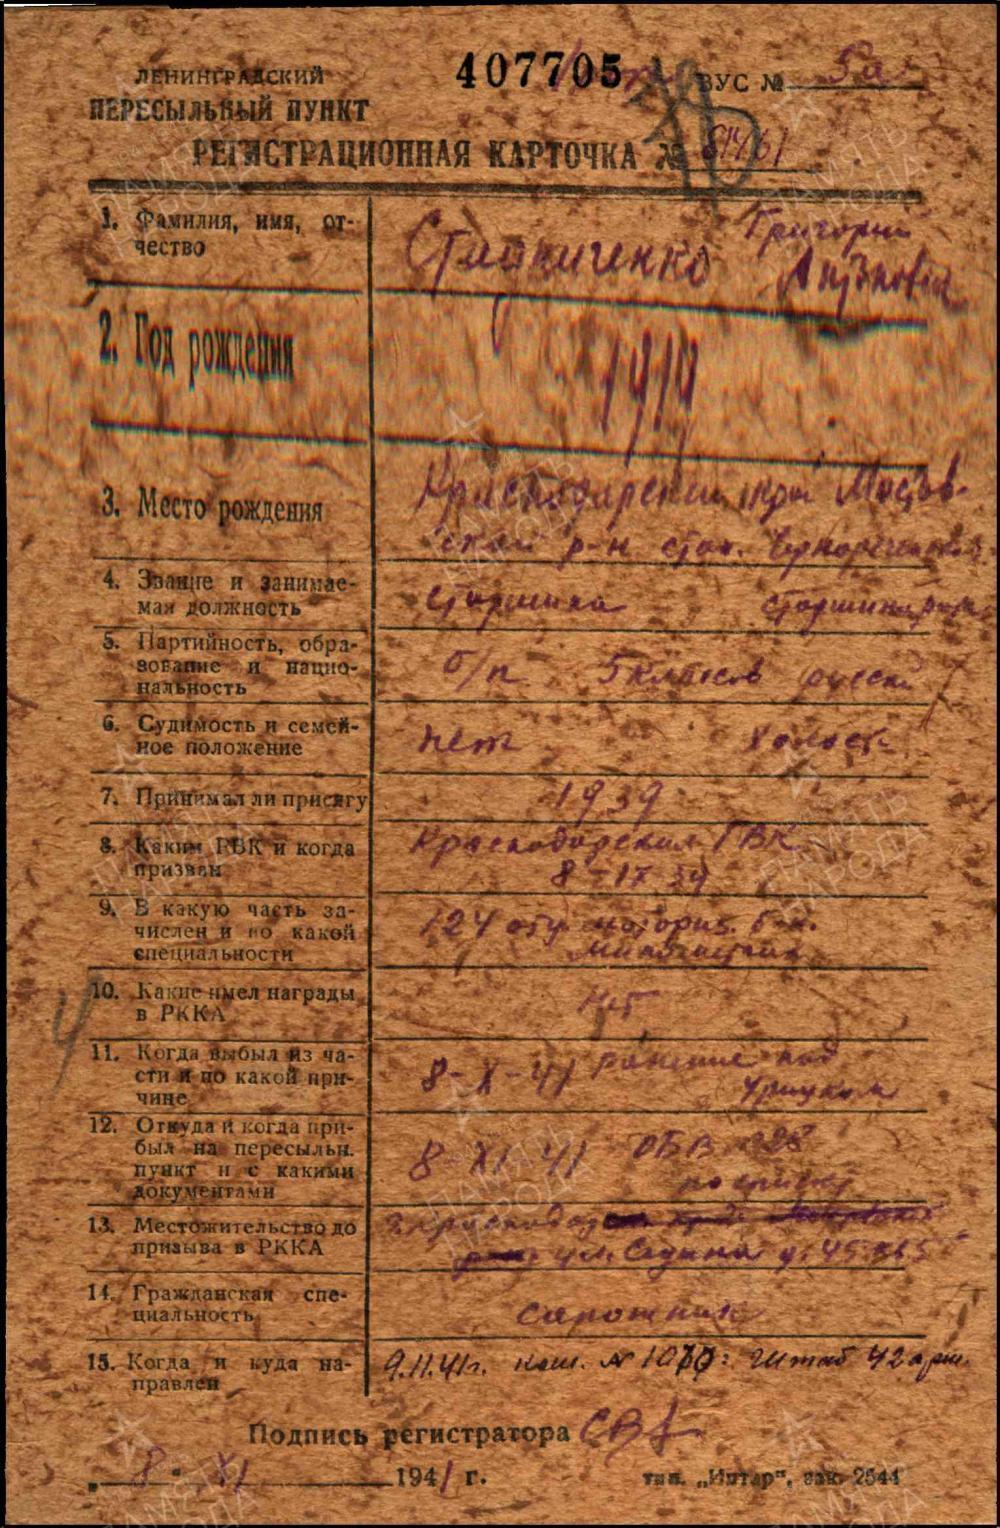 407705
ЛЕНИНГРАДСКИЙ
ВУС № 5а
ПЕРЕСЫЛЬНЫЙ ПУНКТ
РЕГИСТРАЦИОННАЯ КАРТОЧКА №
1. Фамилия, имя, от-
чество
Григорий
2. Год рождения
1919
3. Место рождения
Краснодарский край Мостов-
ский р-н стан.
4. Звание и занимае-
мая должность
старшина старшина роты
5. Партийность, обра-
зование и нацио-
нальность
б/п 5 классов русский
6. Судимость и семей-
ное положение
нет холост
7. Принимал ли присягу
1939
8. Каким РВК и когда
призван
Краснодарский ГВК
8-IX 39
9. В какую часть за-
числен и по какой
специальности
124 отд. моториз. б-н.
10. Какие имел награды
в РККА
нет
11. Когда выбыл из ча-
сти и по какой при-
чине
8-X-41 ранение под
Урицком
12. Откуда и когда при-
был на пересыльн.
пункт и с какими
документами
8-XI 41 ОБВ
по списку
13. Местожительство до
призыва в РККА
г. Краснодар
ул. д. 45 кв 5
14. Гражданская спе-
циальность
сапожник
15. Когда и куда на-
правлен
9.11.41г. ком. № Штаб 42 арм.
Подпись регистратора
„ 8 " XI 1941 г.
тип. „Интар", зак. 2544
ПАМЯТЬ
НАРОДА